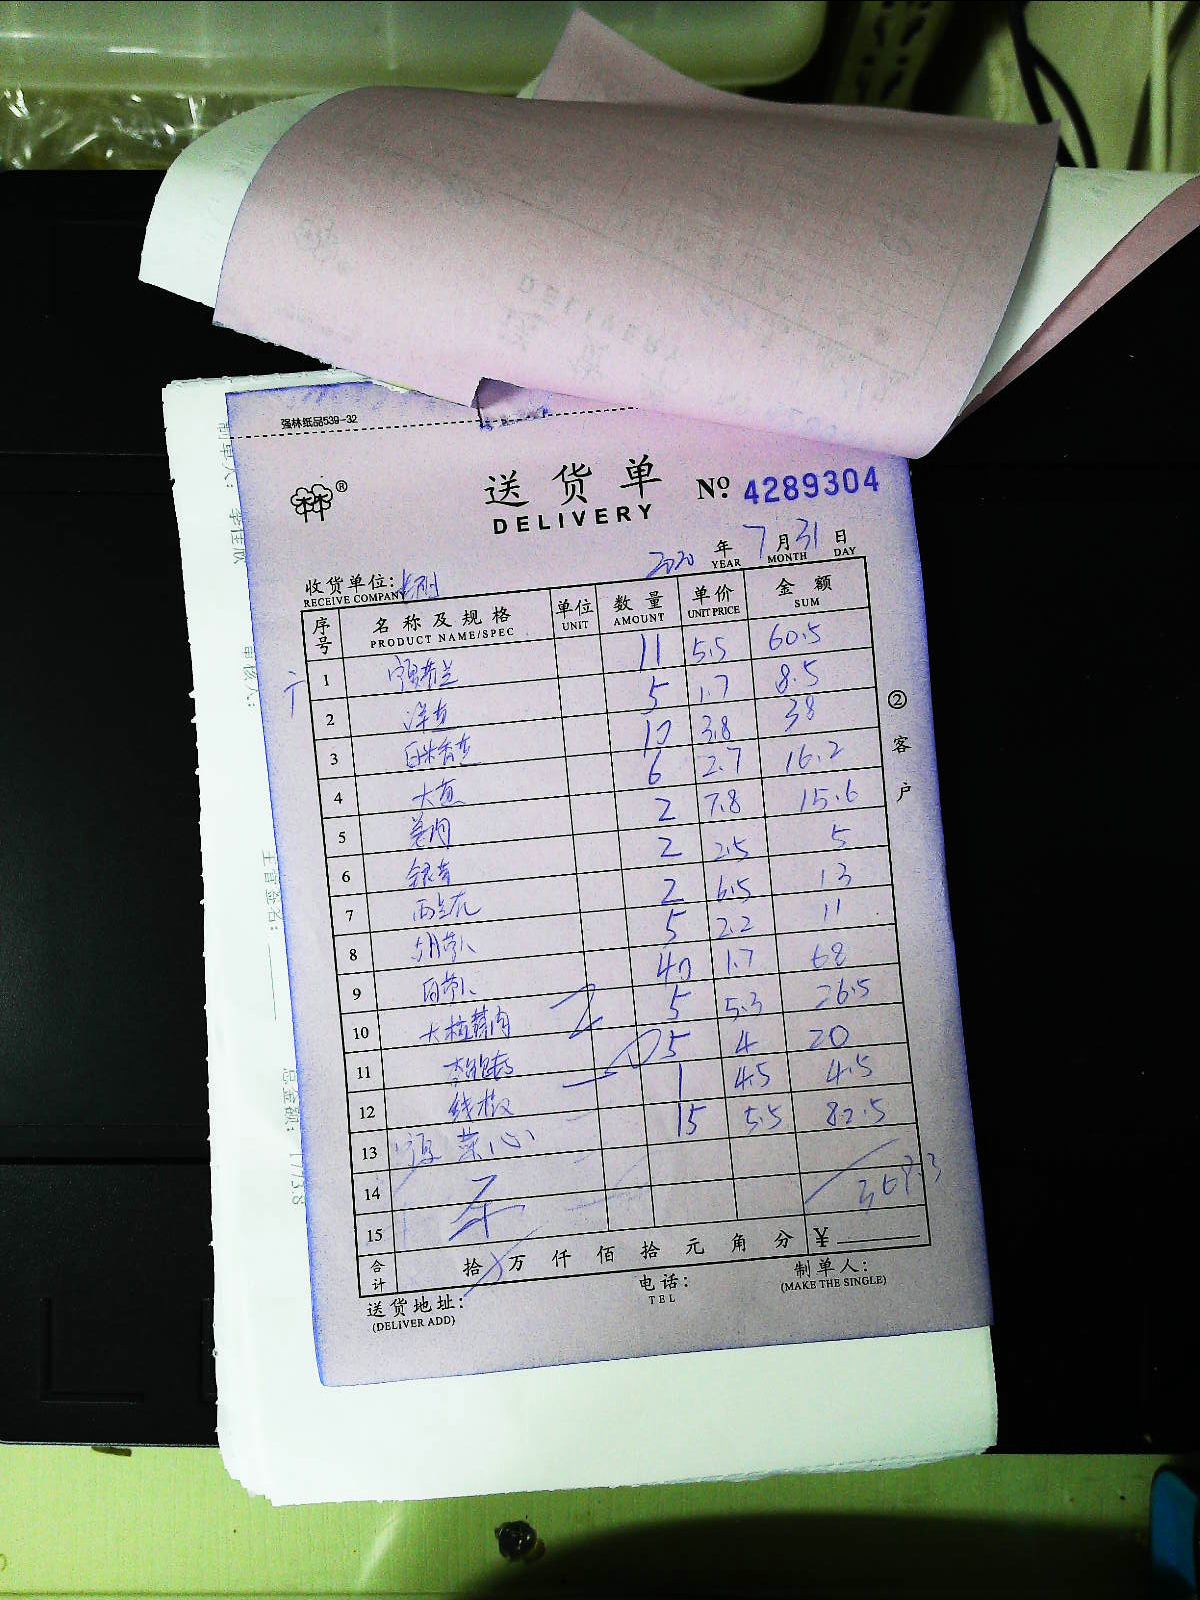 强林纸品539-32
送货单
DELIVERY
№ 4289304
2020 年 7 月 31 日
YEAR MONTH DAY
收货单位:
RECEIVE COMPANY
序号 名称及规格 单位 数量 单价 金额
PRODUCT NAME/SPEC UNIT AMOUNT UNIT PRICE SUM
1 11 5.5 60.5
2 洋 5 1.7 8.5
3 10 3.8 38
4 大 6 2.7 16.2
5 姜肉 2 7.8 15.6
6 银 2 2.5 5
7 西兰花 2 6.5 13
8 胡萝卜 5 2.2 11
9 白萝卜 40 1.7 68
10 5 5.3 26.5
11 5 4 20
12 线椒 1 4.5 4.5
13 菜心 15 5.5 82.5
14
15
369.3
合计 拾 万 仟 佰 拾 元 角 分 ¥
送货地址: 电话: 制单人:
(DELIVER ADD) TEL (MAKE THE SINGLE)
②客户
审核人:
主管签名:
总金额: